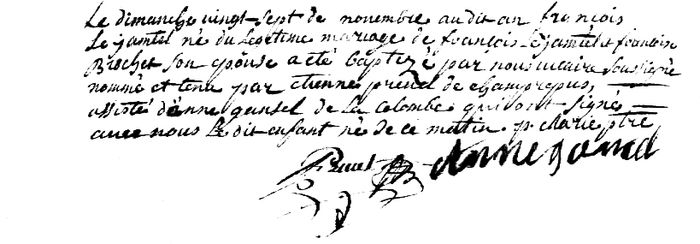 Le dimanche vingt-sept de novembre au dit an françois
Le jamtel né du Legitime mariage de francois Lejamtel et francoise
Brochet son epouse a eté baptezé par nous vicaire soussigné
nommé et tenu par etienne preuel de champrepus,
assisté d'anne gansel de la Colombe qui ont signé
avec nous Le dit enfant né de ce matin. p. Marie ptre
Preuel Anne